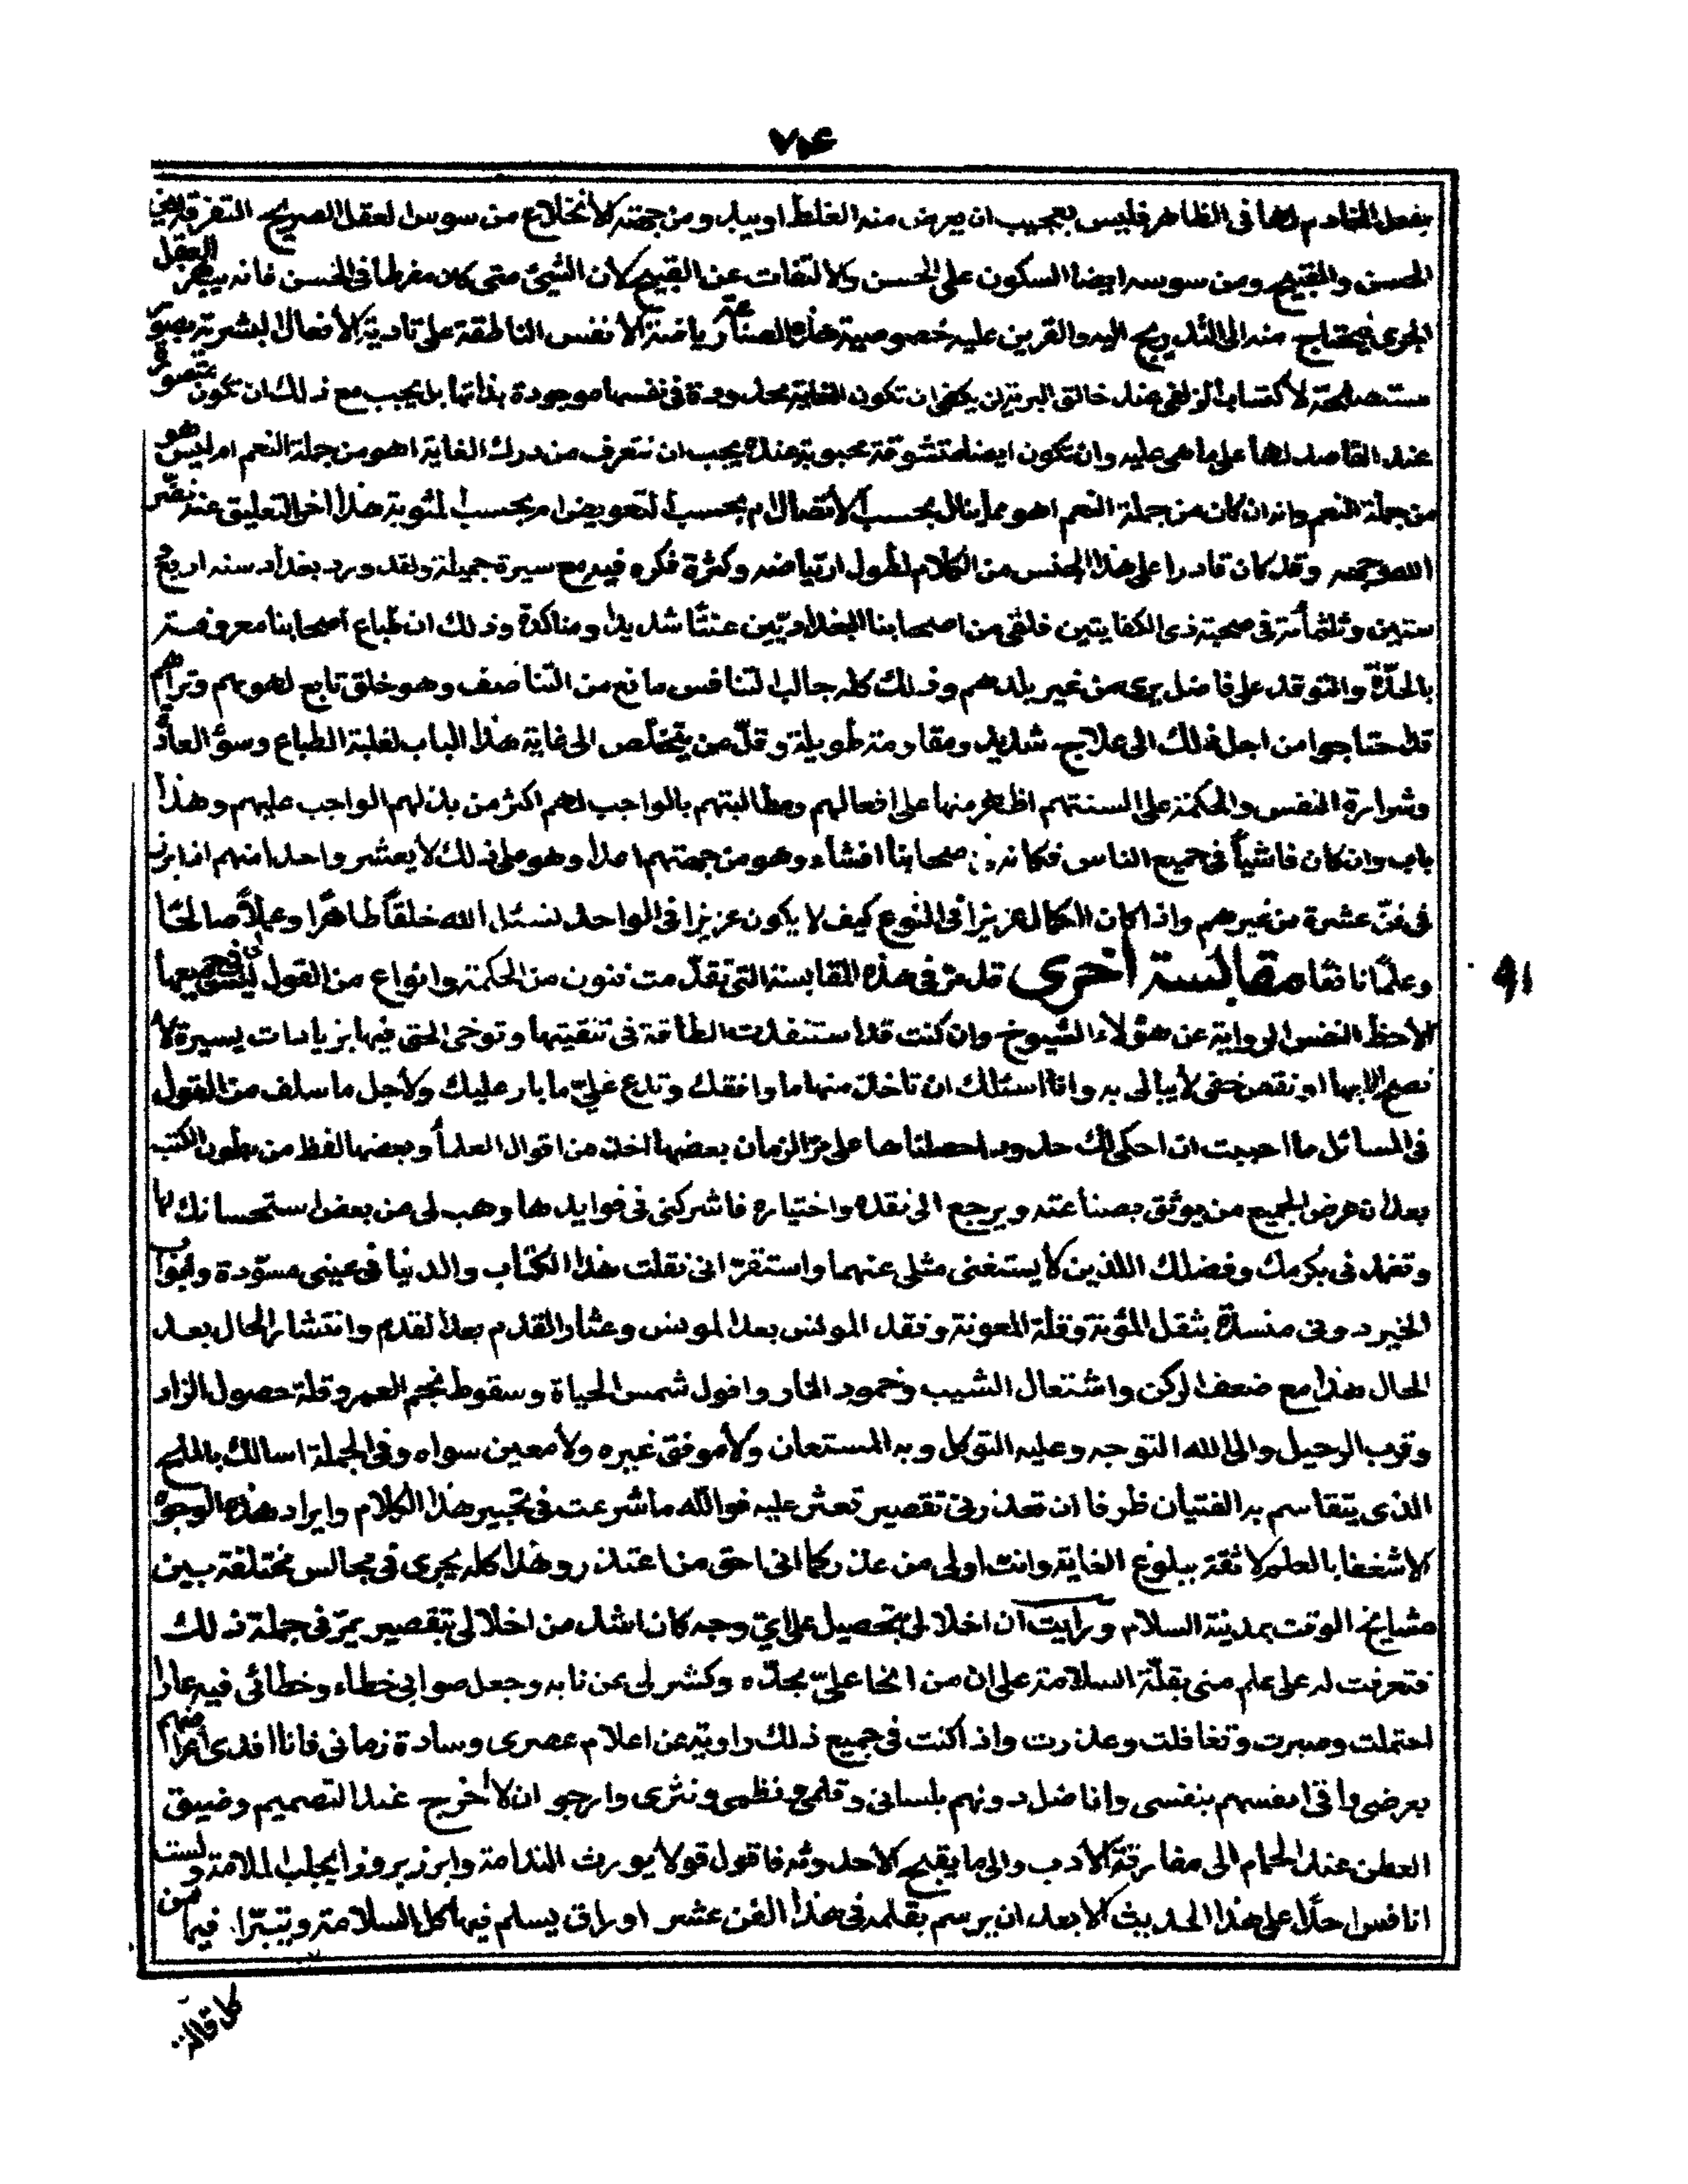 ٧٤
بفعل الخادم لها فى الظاهر فليس بعجيب ان يعرض منه الغلط او يبلد ومن جهته الانخلاع من سوس العقل الصريح التفرقة بين
الحسن والقبيح ومن سوسه ايضا السكون على الحسن والالتفات عن القبيح لان الشيئ متى كان مفرطا فى الحسن فانه يبهر العقل
الجزئ فيحتاج منه الى التدريج اليه والقرين عليه خصوصية هذه الصناعة رياضة الانفس الناطقة على تادية الافعال البشرية بصورة
مستصلحة لاكتساب الزلفى عند خالق البرية لن يكفى ان تكون الغاية محدودة فى نفسها موجودة بذاتها بل يجب مع ذلك ان تكون متصورة
عند القاصد لها على ما هى عليه وان تكون ايضا متشوقة محبوبة عنده يجب ان نتعرف من درك الغاية اهو من جملة النعم ام ليس هو
من جملة النعم وانه ان كان من جملة النعم اهو مما ينال بحسب الاتصال ام بحسب التعويض ام بحسب المثوبة هذا اخر التعليق عنه نضر
الله وجهه وقد كان قادرا على هذا الجنس من الكلام لطول ارتياضه وكثرة فكره فيه مع سيرة جميلة ولقد ورد بغداد سنه اربع
ستين وثلثمائة فى صحبة ذى الكفايتين فلقى من اصحابنا البغداديّين عنتًا شديدا ومناكدة وذلك ان طباع اصحابنا معروفة
بالحدّة والتوقد على فاضل يرى من غير بلدهم وذلك كله جالب التنافس مانع من التناصف وهو خلق تابع لهويهم وتراهم
قد احتاجوا من اجل ذلك الى علاج شديد ومقاومة طويلة وقلّ من يتخلص الى غاية هذا الباب لغلبة الطباع وسؤ العادة
وشرارة النفس والحكمة على السنتهم اظهر منها على افعالهم ومطالبتهم بالواجب لهم اكثر من بذلهم الواجب عليهم وهذا
باب وان كان فاشياً فى جميع الناس فكانه فى اصحابنا افشاء وهو من جهتهم ابدا وهو على ذلك لا يعشر واحدا منهم اذا برز
فى فنّ عشرة من غيرهم واذا كان الكمال عزيزا فى النوع كيف لا يكون عزيزا فى الواحد نسئل الله خلقاً طاهرًا وعملاً صالحًا
وعلمًا نافعًا مقابسة اخرى قد مرّ فى هذه المقابسة التى تقدّمت فنون من الحكمة وانواع من القول ليس لى فى جميعها
الا حظ النفس الرواية عن هؤلاء الشيوخ وان كنت قد استنفدت الطاقة فى تنقيتها وتوخى الحق فيها بزيادات يسيرة لا
تصح الا بها او نقص خفى لا يبالى به وانا اسئلك ان تاخذ منها ما وافقك وتدع علىّ ما بار عليك ولاجل ما سلف من القول
فى المسائل ما احببت ان احكى لك حدود احصلناها على مرّ الزمان بعضها اخذ من اقوال العلماء وبعضها لفظ من بطون الكتب
بعد ان عرض الجميع من يوثق بصناعته ويرجع الى نقده واختياره فاشركنى فى فوايدها وهب لى من بعض استحسانك لها
وتغمد فى بكرمك وفضلك اللذين لا يستغنى مثلى عنهما واستقرّ انى نقلت هذا الكتاب والدنيا فى عينى مسوّدة وابواب
الخير دونى منسدّة بثقل المؤنة وقلة المعونة وفقد المونس بعد المونس وعثار القدم بعد القدم وانتشار الحال بعد
الحال هذا مع ضعف الركن واشتعال الشيب وخمود النار وافول شمس الحياة وسقوط نجم العمر وقلة حصول الزاد
وقرب الرحيل والى الله التوجه وعليه التوكل وبه المستعان ولا موفق غيره ولا معين سواه وفى الجملة اسالك بالملح
الذى يتقاسم به الفتيان ظرفا ان تعذرنى تقصير تعثر عليه فوالله ما شرعت فى تحبير هذا الكلام وايراد هذه الوجوه
الا شغفا بالعلم لا ثقة ببلوغ الغاية وانت اولى من عذر كما انى احق من اعتذر وهذا كله يجرى فى مجالس مختلفة بين
مشايخ الوقت بمدينة السلام ورايت ان اخلالى بتحصيل على اىّ وجه كان اشد من اخلالى بتقصير يمرّ فى جملة ذلك
فتعرضت له على علم منى بقلّة السلامة على ان من انحا علىّ بحدّه وكشر لى عن نابه وجعل صوابى خطاء وخطائى فيه عارا
احتملت وصبرت وتغافلت وعذرت واذ اكنت فى جميع ذلك راوية عن اعلام عصرى وسادة زمانى فانا افدى اعراضهم
بعرضى واقى انفسهم بنفسى واناضل دونهم بلسانى وقلمى ونظمى ونثرى وارجو ان لا اخرج عند التصميم وضيق
العطن عند الحمام الى مفارقة الادب والى ما يقبح الاحدوثه فاقول قولا يورث الندامة وابرز بروزا يجلب الملامة ولست
انافس احدًا على هذا الحديث الا بعد ان يرسم بقلمه فى هذا الفن عشر اوراق يسلم فيها كل السلامة ويتبرّا فيها من
٩١
كل قالة